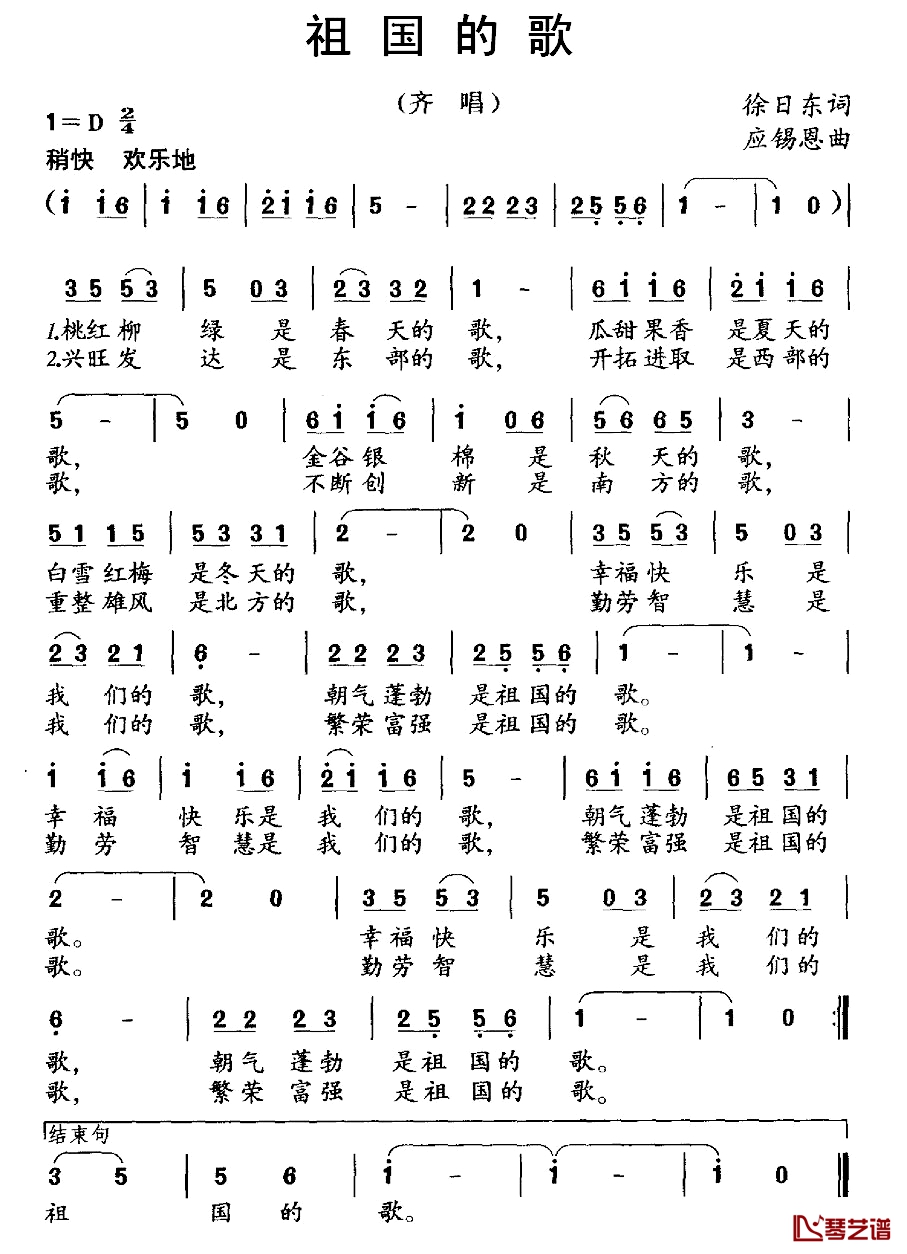 祖国的歌
(齐 唱)
1=D 2/4
徐日东词
应锡恩曲
稍快 欢乐地
(i i6 | i i6 | 2i i6 | 5 - | 22 23 | 25 56 | 1 - | 1 0)|
35 53 | 5 03 | 23 32 | 1 - | 6i i6 | 2i i6 |
1.桃红柳 绿是春天的歌, 瓜甜果香是夏天的
2.兴旺发 达是东部的歌, 开拓进取是西部的
5 - | 5 0 | 6i i6 | i 06 | 56 65 | 3 - |
歌, 金谷银棉是秋天的歌,
歌, 不断创新是南方的歌,
51 15 | 53 31 | 2 - | 2 0 | 35 53 | 5 03 |
白雪红梅是冬天的歌, 幸福快乐是
重整雄风是北方的歌, 勤劳智慧是
23 21 | 6 - | 22 23 | 25 56 | 1 - | 1 - |
我们的歌, 朝气蓬勃是祖国的歌。
我们的歌, 繁荣富强是祖国的歌。
i i6 | i i6 | 2i i6 | 5 - | 6i i6 | 65 31 |
幸福快乐是我们的歌, 朝气蓬勃是祖国的
勤劳智慧是我们的歌, 繁荣富强是祖国的
2 - | 2 0 | 35 53 | 5 03 | 23 21 |
歌。 幸福快乐是我们的
歌。 勤劳智慧是我们的
6 - | 22 23 | 25 56 | 1 - | 1 0 :|
歌, 朝气蓬勃是祖国的歌。
歌, 繁荣富强是祖国的歌。
结束句
3 5 | 5 6 | i - | i - | i 0 |
祖国的歌。
琴艺谱